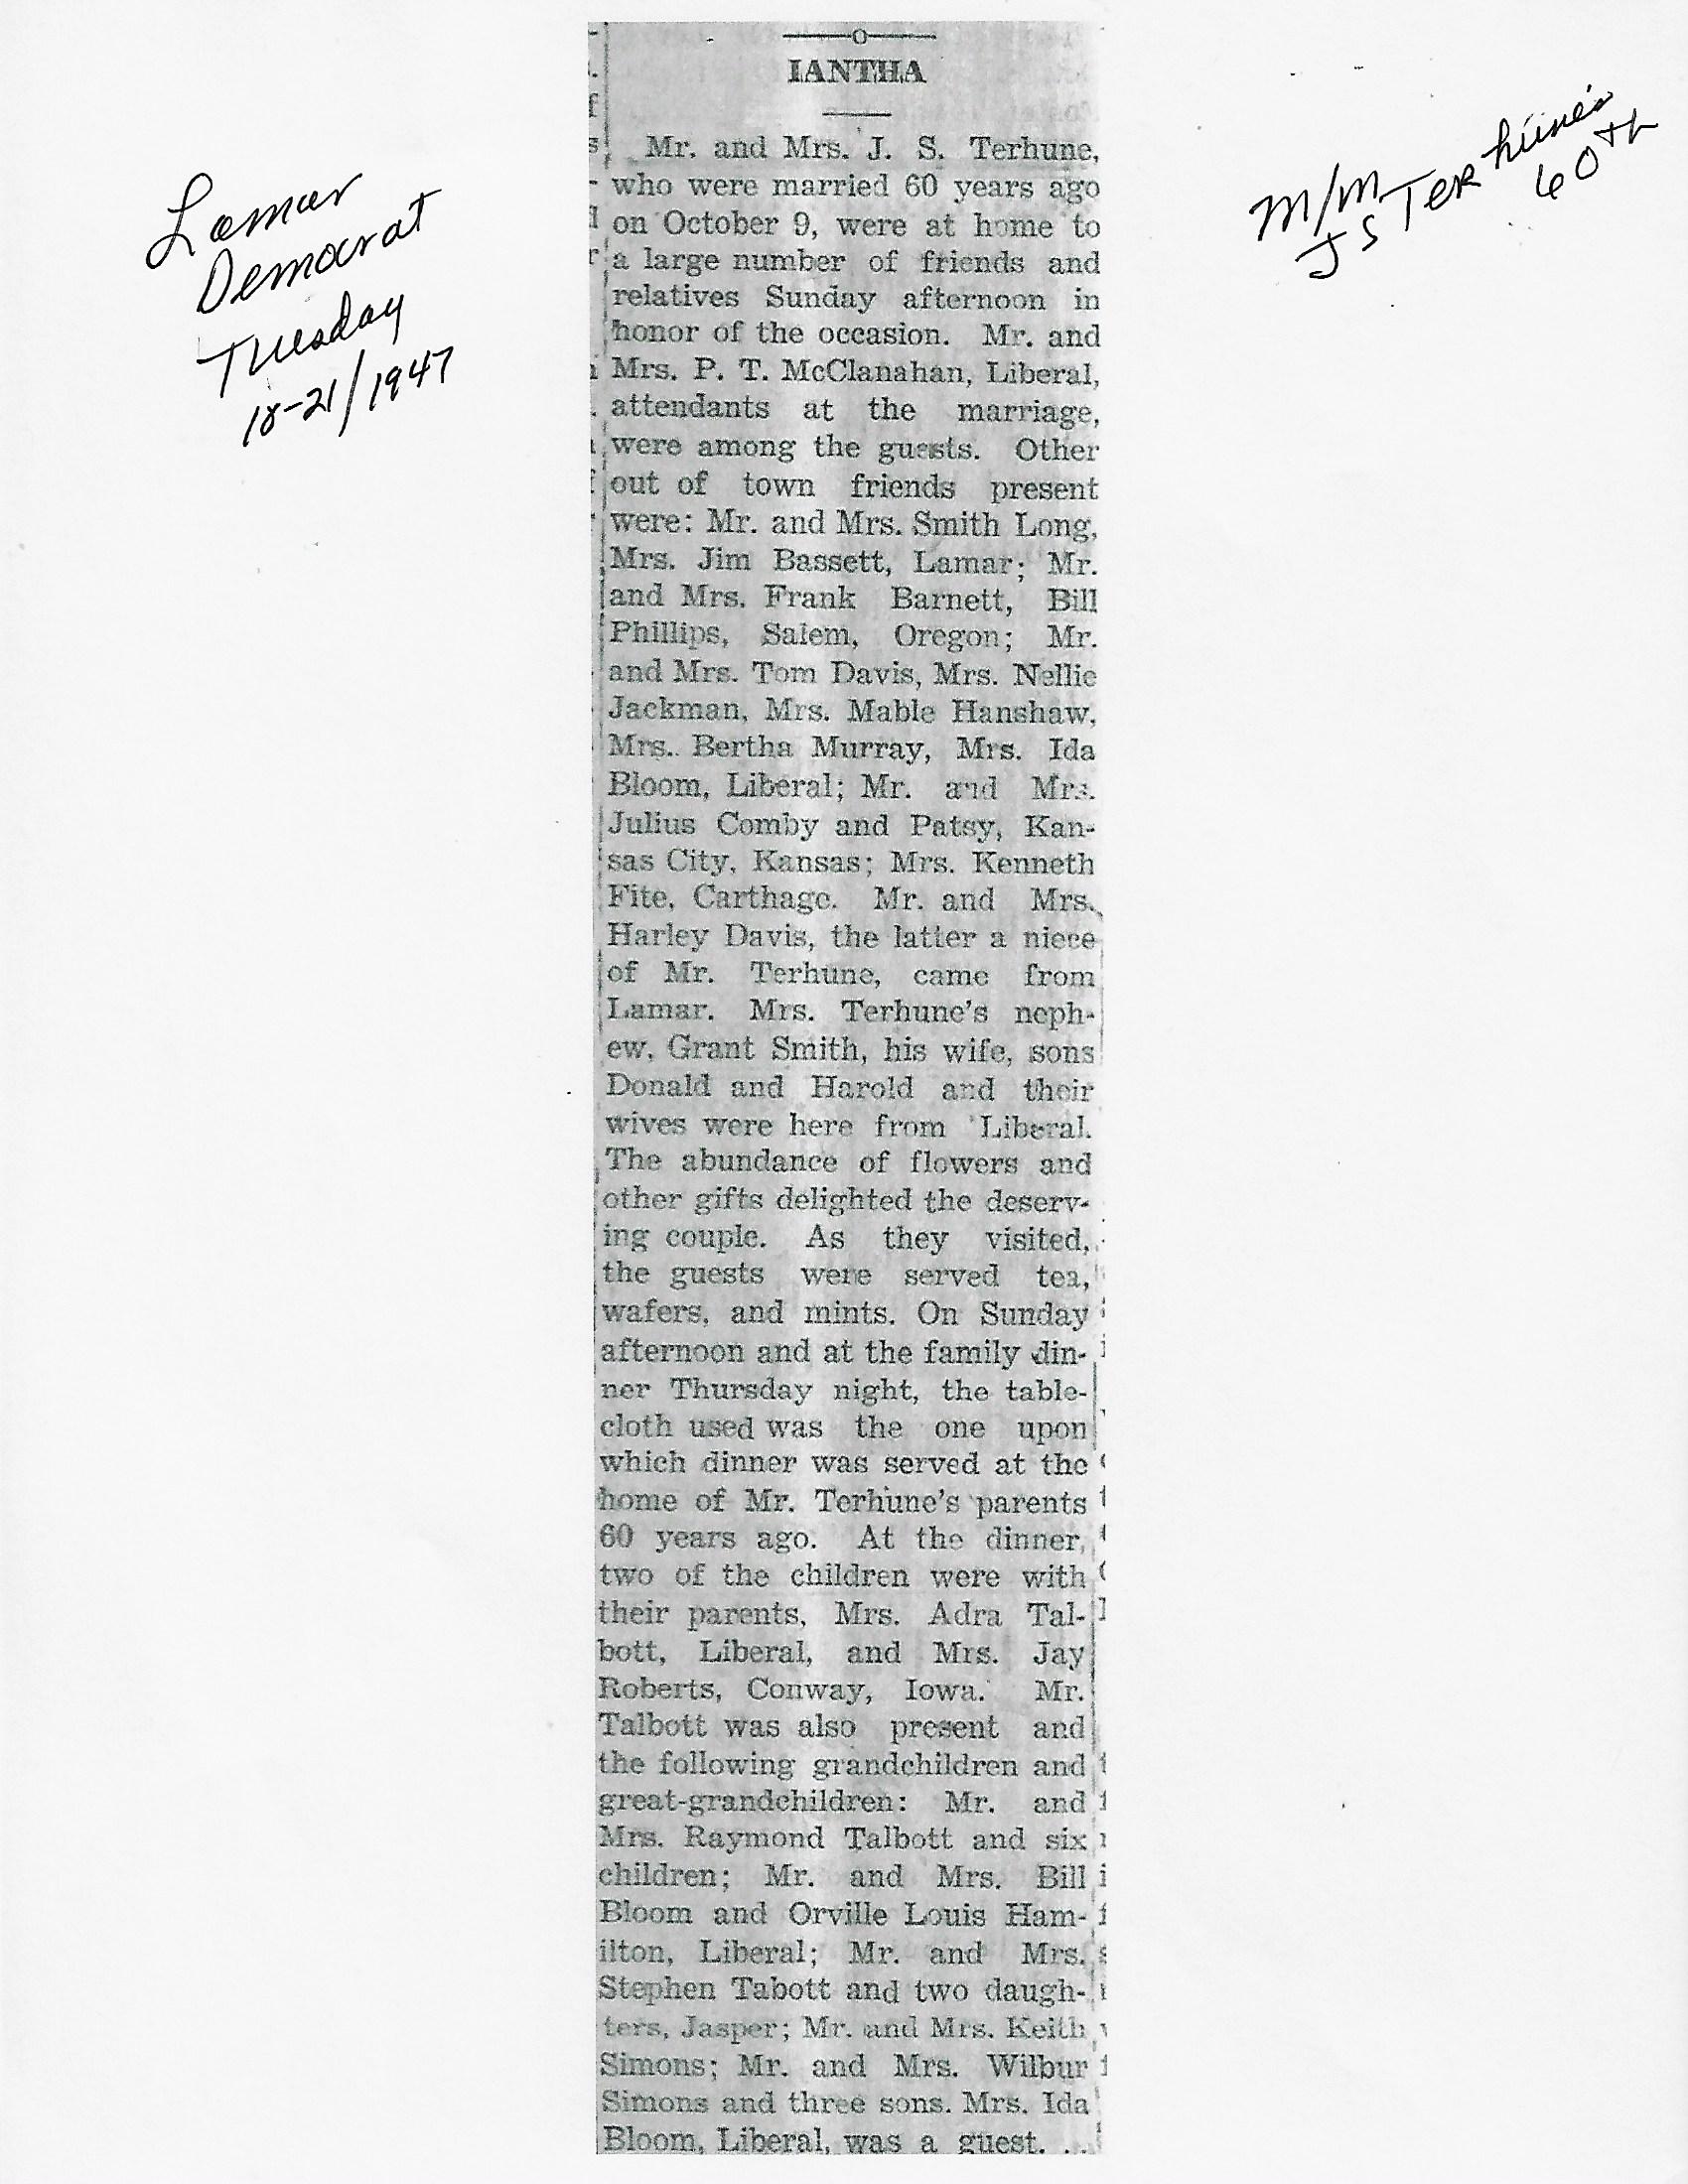 Lamar
Democrat
Tuesday
10-21/1947
M/M
J S Terhune's
60th
IANTHA
Mr. and Mrs. J. S. Terhune,
who were married 60 years ago
on October 9, were at home to
a large number of friends and
relatives Sunday afternoon in
honor of the occasion. Mr. and
Mrs. P. T. McClanahan, Liberal,
attendants at the marriage,
were among the guests. Other
out of town friends present
were: Mr. and Mrs. Smith Long,
Mrs. Jim Bassett, Lamar; Mr.
and Mrs. Frank Barnett, Bill
Phillips, Salem, Oregon; Mr.
and Mrs. Tom Davis, Mrs. Nellie
Jackman, Mrs. Mable Hanshaw,
Mrs. Bertha Murray, Mrs. Ida
Bloom, Liberal; Mr. and Mrs.
Julius Comby and Patsy, Kan-
sas City, Kansas; Mrs. Kenneth
Fite, Carthage. Mr. and Mrs.
Harley Davis, the latter a niece
of Mr. Terhune, came from
Lamar. Mrs. Terhune's neph-
ew, Grant Smith, his wife, sons
Donald and Harold and their
wives were here from Liberal.
The abundance of flowers and
other gifts delighted the deserv-
ing couple. As they visited,
the guests were served tea,
wafers, and mints. On Sunday
afternoon and at the family din-
ner Thursday night, the table-
cloth used was the one upon
which dinner was served at the
home of Mr. Terhune's parents
60 years ago. At the dinner,
two of the children were with
their parents, Mrs. Adra Tal-
bott, Liberal, and Mrs. Jay
Roberts, Conway, Iowa. Mr.
Talbott was also present and
the following grandchildren and
great-grandchildren: Mr. and
Mrs. Raymond Talbott and six
children; Mr. and Mrs. Bill
Bloom and Orville Louis Ham-
ilton, Liberal; Mr. and Mrs.
Stephen Tabott and two daugh-
ters, Jasper; Mr. and Mrs. Keith
Simons; Mr. and Mrs. Wilbur
Simons and three sons. Mrs. Ida
Bloom, Liberal, was a guest.